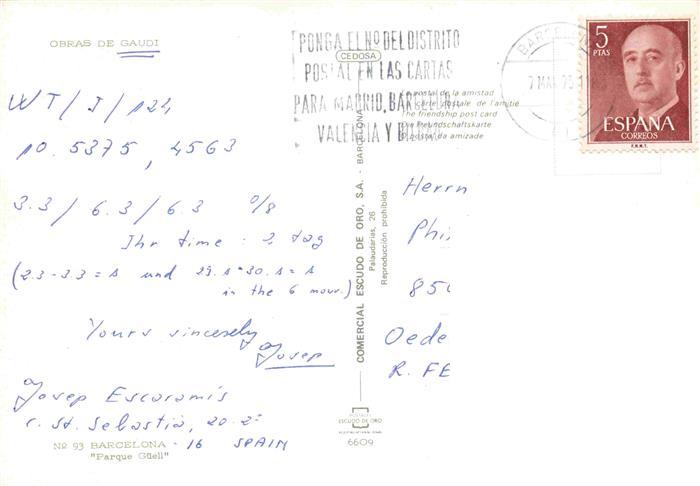 OBRAS DE GAUDI
WT/J/124
no. 5375, 4563
3.3/6.3/6.3 0/8
Ihr time : 2 tag
(2.3-3.3=1 und 29.1-30.1=1
in the 6 mour.)
Yours sincerely
Josep
Josep Escaramís
c. St. Sebastià, 20-2º
Nº 93 BARCELONA - 16 SPAIN
"Parque Güell"
PONGA EL Nº DEL DISTRITO
POSTAL EN LAS CARTAS
PARA MADRID, BARCELO
VALENCIA Y
CEDOSA
postal de la amistad
carte postale de l'amitié
The friendship post card
Die Freundschaftskarte
O postal da amizade
COMERCIAL ESCUDO DE ORO, S.A. - BARCELONA
Palaudarias, 26
Reproducción prohibida
ESCUDO DE ORO
6609
BARCEL
5
PTAS
ESPAÑA
CORREOS
F.N.M.T.
Herrn
Phi
850
Oede
R. FE